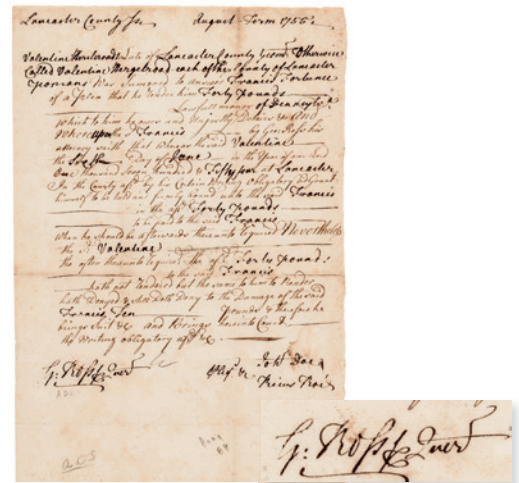 Lancaster County ss. August Term 1755.
Valentine late of Lancaster County Otherwise
Called Valentine Hergelroad each of the County of Lancaster
yeoman Was Summoned to answer Francis Fortunee
of a plea that he render him Forty Pounds
Lawfull money of Pennsylv.a
which to him he owes and Unjustly Detains &c And
Whereupon the sd Francis by Geo: Ross his
attorney saith that whereas the said Valentine
the Day of June in the Year of our Lord
One thousand Seven hundred & Fifty four at Lancaster
In the County afsd by his Certain Writing Obligatory did Grant
himself to be held and firmly bound unto the said Francis
in the afsd Forty Pounds
to be paid to the said Francis
when he should be afterwards thereunto required Nevertheless
the sd Valentine
tho often thereunto required the afsd Forty pounds
to the said Francis
hath not rendered but the same to him to Render
hath Denyed & still doth Deny to the Damage of the said
Francis Ten pounds & therefore he
brings Suit &c and Brings here into Court
the Writing obligatory afsd &c
John Doe
G: Ross Quer
&
G: Ross Quer